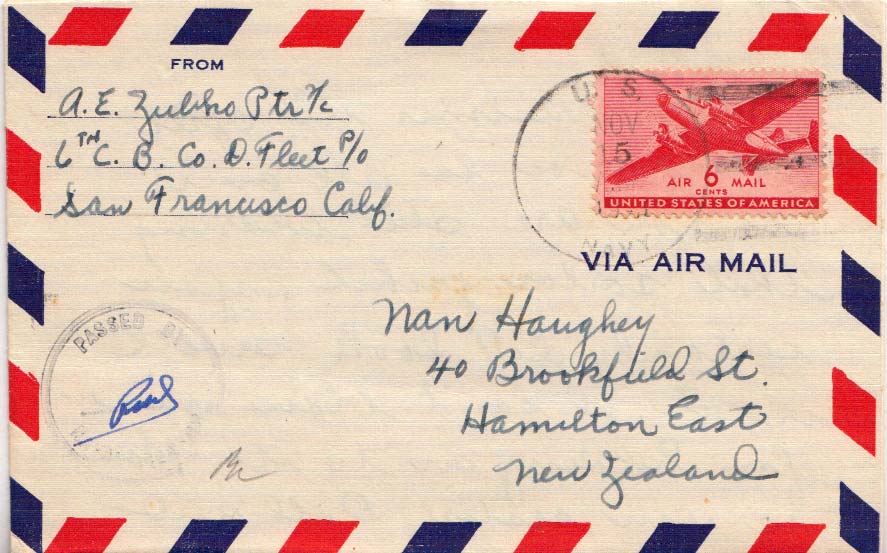 FROM
A. E. Zubko Ptr 1/c
6TH C. B. Co. D. Fleet P/O
San Francisco Calif.
U. S.
NOV
5
NAVY
AIR 6 MAIL
CENTS
UNITED STATES OF AMERICA
VIA AIR MAIL
Nan Haughey
40 Brookfield St.
Hamilton East
New Zealand
PASSED BY